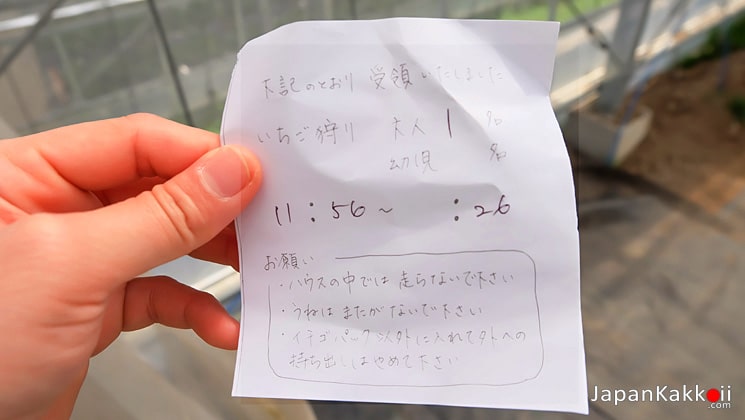 下記のとおり 受領いたしました
いちご狩り 大人 1 名
幼児 名
11:56～ :26
お願い
・ハウスの中では走らないで下さい
・うねはまたがないで下さい
・イチゴパック以外に入れて外への
持ち出しはやめて下さい
JapanKakkoii
.com